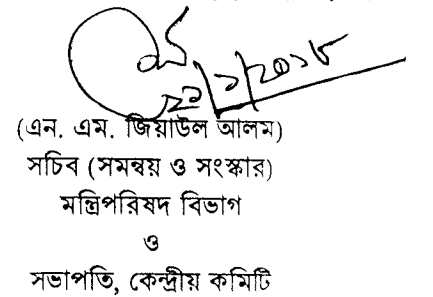 (এন. এম. জিয়াউল আলম)
সচিব (সমন্বয় ও সংস্কার)
মন্ত্রিপরিষদ বিভাগ
ও
সভাপতি, কেন্দ্রীয় কমিটি